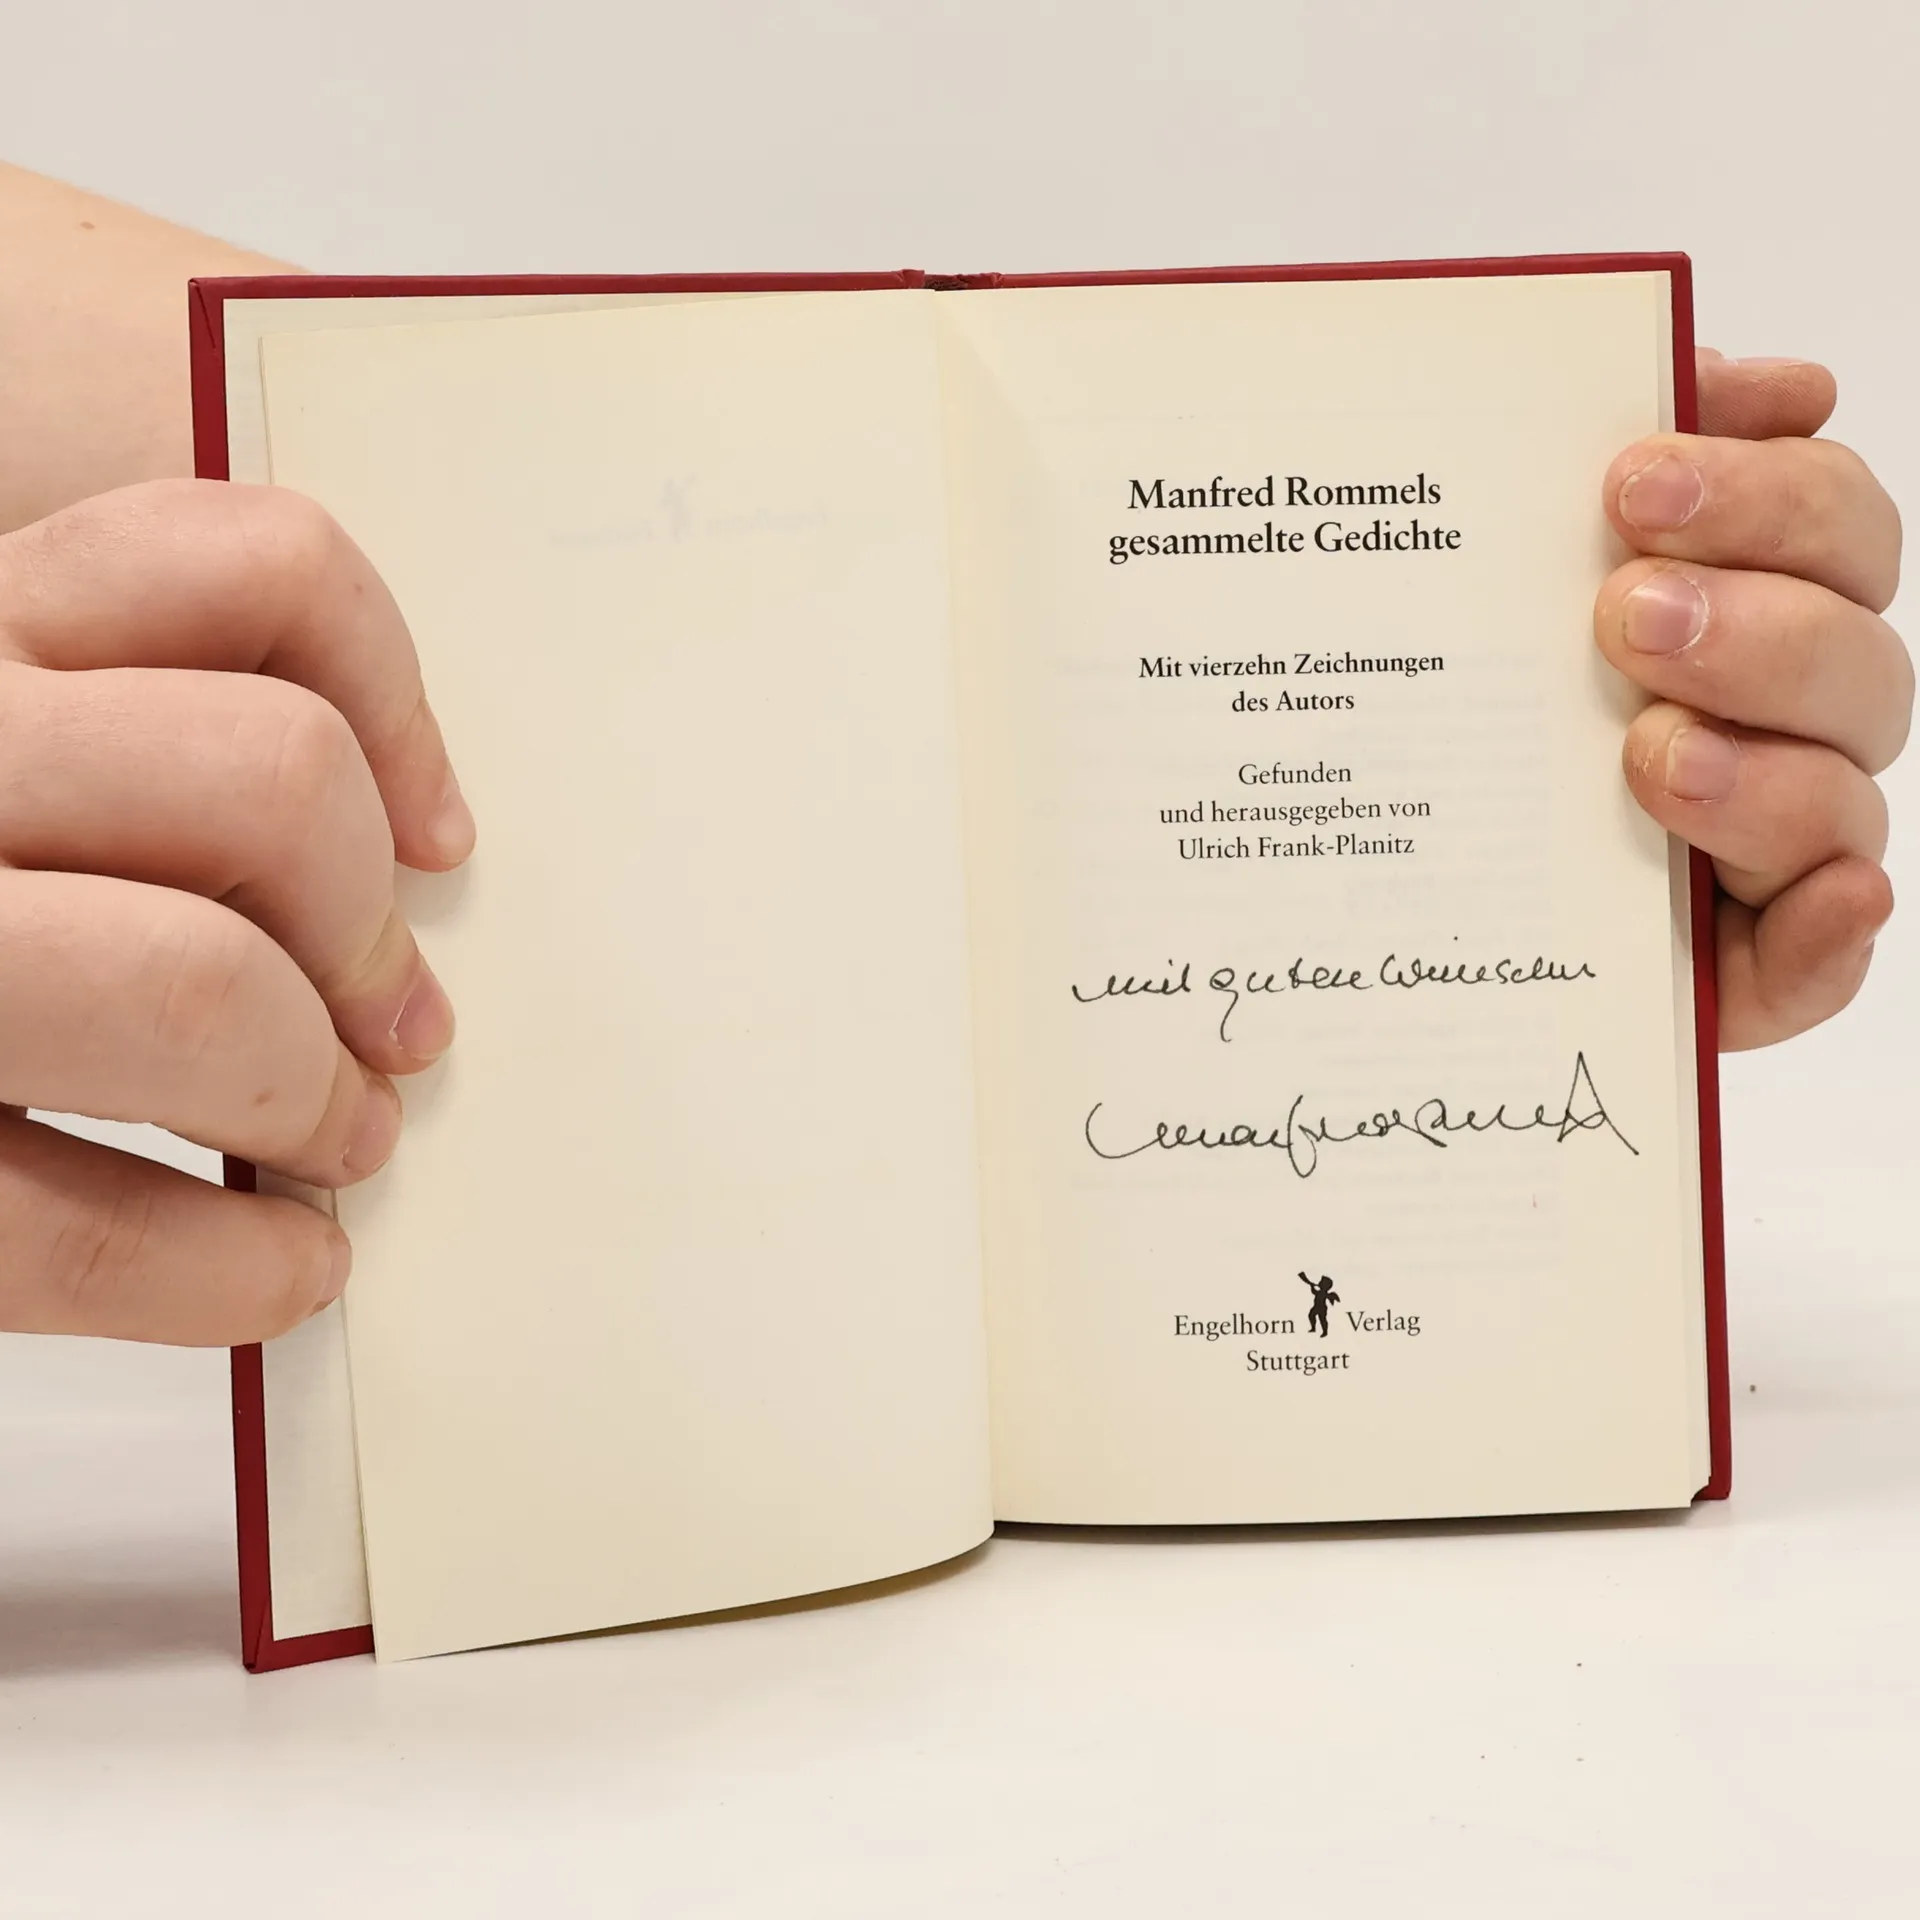 Manfred Rommels
gesammelte Gedichte
Mit vierzehn Zeichnungen
des Autors
Gefunden
und herausgegeben von
Ulrich Frank-Planitz
mit guten Wünschen
Manfred Rommel
Engelhorn Verlag
Stuttgart